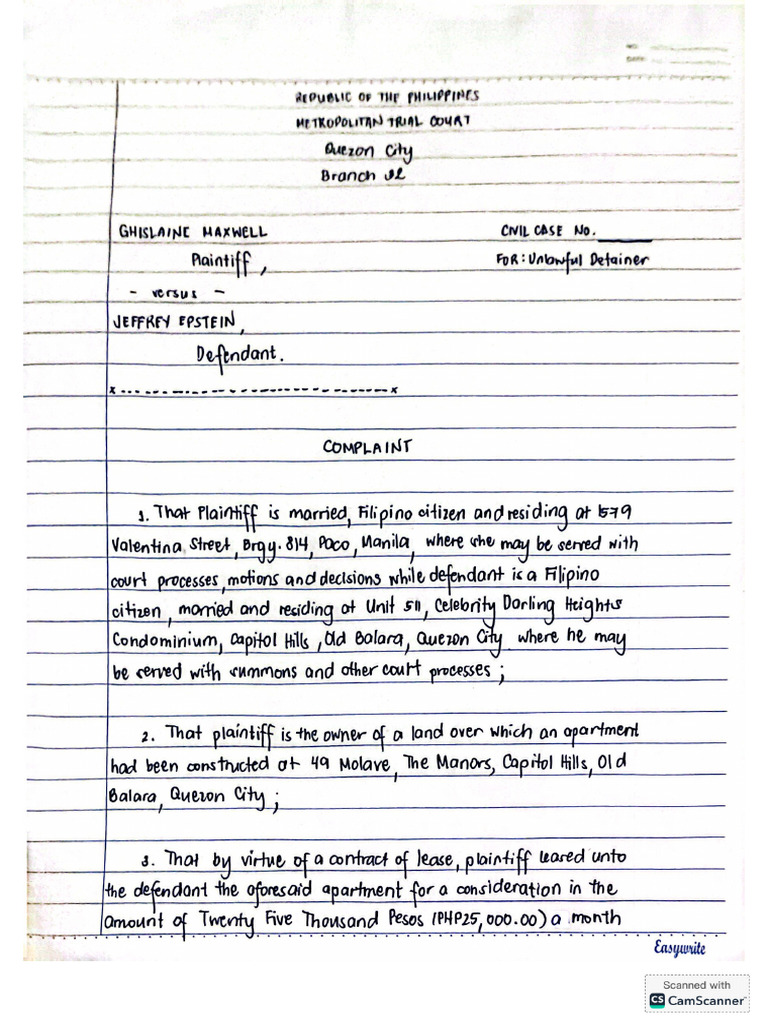 REPUBLIC OF THE PHILIPPINES
METROPOLITAN TRIAL COURT
Quezon City
Branch 32
GHISLAINE MAXWELL CIVIL CASE No. ______
Plaintiff, FOR: Unlawful Detainer
- versus -
JEFFREY EPSTEIN,
Defendant.
x-------------------------------x
COMPLAINT
1. That Plaintiff is married, Filipino citizen and residing at 1579
Valentina Street, Brgy. 814, Paco, Manila, where she may be served with
court processes, motions and decisions while defendant is a Filipino
citizen, married and residing at Unit 511, Celebrity Darling Heights
Condominium, Capitol Hills, Old Balara, Quezon City where he may
be served with summons and other court processes;
2. That plaintiff is the owner of a land over which an apartment
had been constructed at 49 Molave, The Manors, Capitol Hills, Old
Balara, Quezon City;
3. That by virtue of a contract of lease, plaintiff leased unto
the defendant the aforesaid apartment for a consideration in the
amount of Twenty Five Thousand Pesos (PHP25,000.00) a month
Easywrite
Scanned with
CS CamScanner